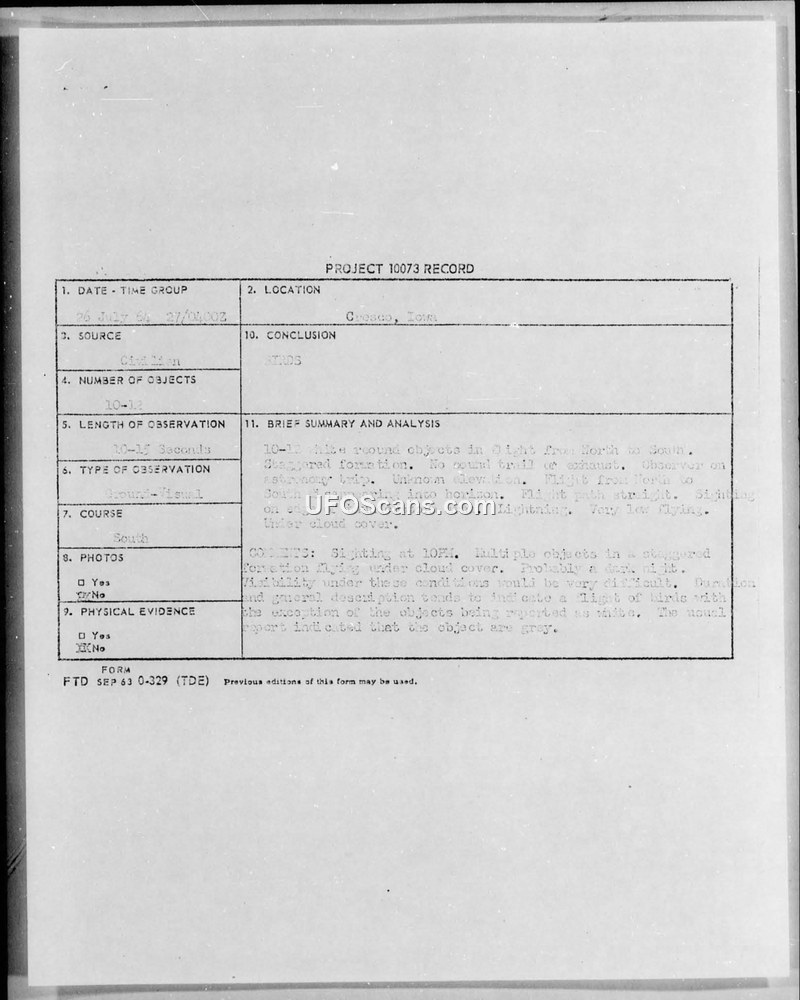 PROJECT 10073 RECORD
1. DATE - TIME GROUP
26 July 64 27/0400Z
2. LOCATION
Cresco, Iowa
3. SOURCE
Civilian
10. CONCLUSION
BIRDS
4. NUMBER OF OBJECTS
10-12
5. LENGTH OF OBSERVATION
10-15 Seconds
11. BRIEF SUMMARY AND ANALYSIS
10-12 white round objects in flight from North to South.
Staggered formation. No sound trail or exhaust. Observer on
astronomy trip. Unknown elevation. Flight from North to
South disappearing into horizon. Flight path straight. Sighting
on Lightning. Very low flying.
Under cloud cover.
6. TYPE OF OBSERVATION
Ground-Visual
7. COURSE
South
8. PHOTOS
□ Yes
XX No
COMMENTS: Sighting at 10PM. Multiple objects in a staggered
formation flying under cloud cover. Probably a dark night.
Visibility under these conditions would be very difficult. Duration
and general description tends to indicate a flight of birds with
the exception of the objects being reported as white. The usual
report indicated that the object are grey.
9. PHYSICAL EVIDENCE
□ Yes
XX No
FORM
FTD SEP 63 0-329 (TDE) Previous editions of this form may be used.
UFOScans.com